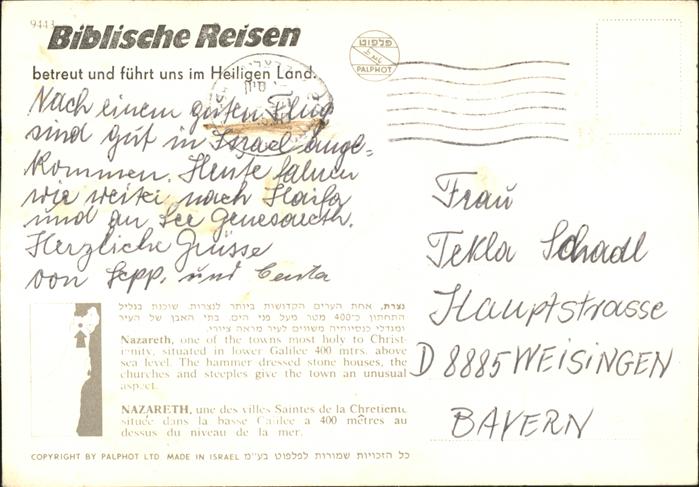 9443
Biblische Reisen
betreut und führt uns im Heiligen Land.
פלפוט
PALPHOT
Nach einem guten Flug
sind gut in Israel ange-
kommen. Heute fahren
wir weiter nach Haifa
und an See Genesareth.
Herzliche Grüsse
von Sepp. und Centa
Frau
Tekla Schadl
Hauptstrasse
D 8885 WEISINGEN
BAYERN
נצרת, אחת הערים הקדושות ביותר לנצרות, שוכנת בגליל
התחתון כ־400 מטר מעל פני הים. בתי האבן של העיר
ומגדלי כנסיותיה משווים לעיר מראה ציורי.
Nazareth, one of the towns most holy to Christ-
ienity, situated in lower Galilee 400 mtrs. above
sea level. The hammer dressed stone houses, the
churches and steeples give the town an unusual
aspect.
NAZARETH, une des villes Saintes de la Chretiente
située dans la basse Galilee a 400 mêtres au
dessus du niveau de la mer.
COPYRIGHT BY PALPHOT LTD MADE IN ISRAEL כל הזכויות שמורות לפלפוט בע״מ